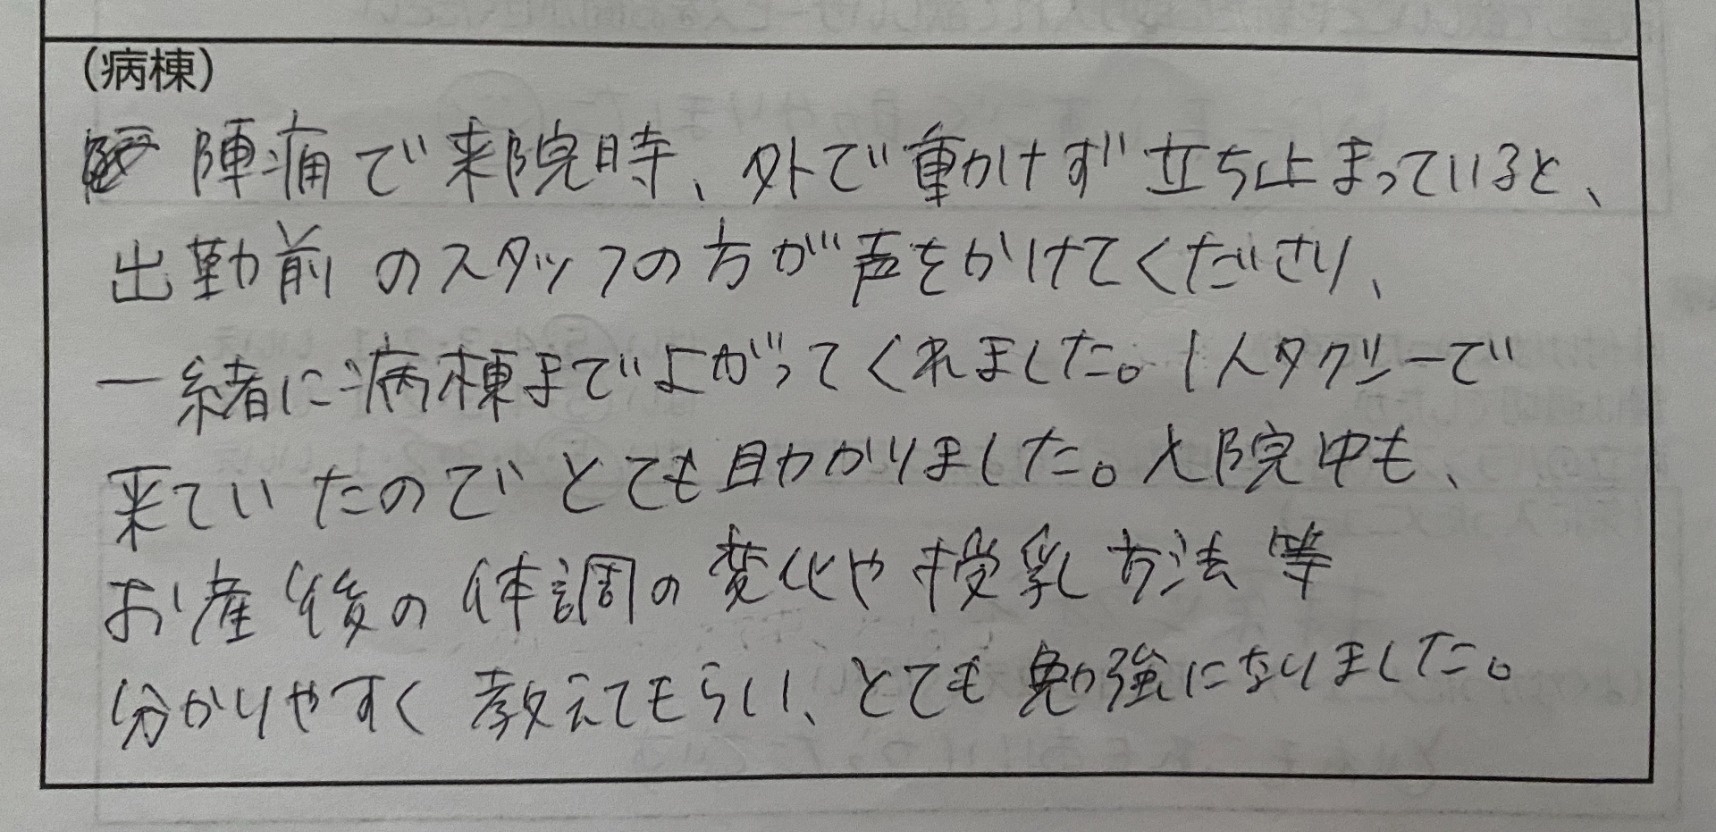 (病棟)
陣痛で来院時、外で動かけず立ち止まっていると、
出勤前のスタッフの方が声をかけてくださり、
一緒に病棟まで上がってくれました。1人タクシーで
来ていたのでとても助かりました。入院中も、
お産後の体調の変化や授乳方法等
分かりやすく教えてもらい、とても勉強になりました。